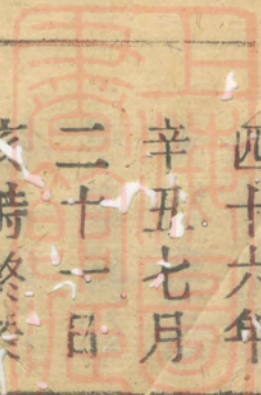 四十六年
辛丑七月
二十一日
亥時終葵